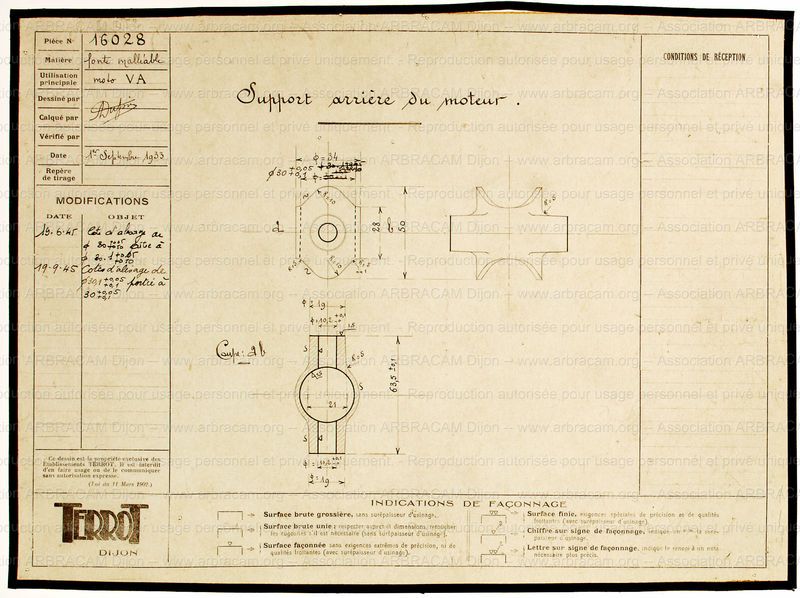 Pièce N° 16028
Matière fonte malléable
Utilisation principale moto VA
Dessiné par
Calqué par
Vérifié par
Date 1er Septembre 1933
Repère de tirage
MODIFICATIONS
DATE OBJET
19.6.45 Cote d'alésage au
φ 30
φ 30.1
19-9-45 Cotes d'alésage de
φ30,1 +0,05 +0,1 portée à
30 +0,05 +0,1
Ce dessin est la propriété exclusive des
Etablissements TERROT. Il est interdit
d'en faire usage ou de le communiquer
sans autorisation expresse.
(Loi du 11 Mars 1902.)
TERROT
DIJON
Support arrière du moteur.
CONDITIONS DE RÉCEPTION
φ = 34
φ 30 +0,05 +0,1
a
b
28
50
R=5
φ 19
φ=10,2
15
Coupe: ab
S
S
R=5
S
21
63,5 ±0,1
S
φ = 19
INDICATIONS DE FAÇONNAGE
Surface brute grossière, sans surépaisseur d'usinage.
Surface brute unie; respecter aspect et dimensions, retoucher
les rugosités s'il est nécessaire (sans surépaisseur d'usinage).
Surface façonnée sans exigences extrêmes de précision, ni de
qualités frottantes (avec surépaisseur d'usinage).
Surface finie, exigences spéciales de précision et de qualités
frottantes (avec surépaisseur d'usinage).
Chiffre sur signe de façonnage, indique en m/m la surépaisseur d'usinage.
Lettre sur signe de façonnage, indique le renvoi à un texte
nécessaire plus précis.
Association ARBRACAM Dijon -- www.arbracam.org -- Reproduction autorisée pour usage personnel et privé uniquement.